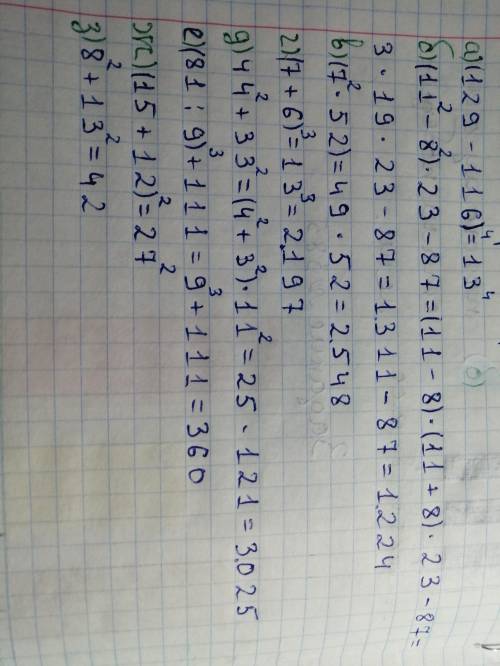 а)(129-116)⁴=13⁴
б)(11²-8²)·23-87=(11-8)·(11+8)·23-87=
3·19·23-87=1311-87=1224
в)(7²·52)=49·52=2548
г)(7+6)³=13³=2197
д)44²+33²=(4²+3²)·11²=25·121=3025
е)(81:9)³+111=9³+111=360
ж)(15+12)²=27²
з)8²+13²=42